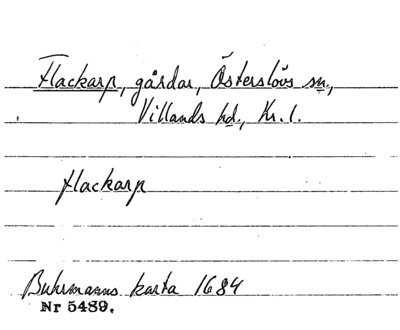 Flackarp, gårdar, Österslövs sn.,
Villands hd., Kr. l.
flackarp
Buhrmanns karta 1684
Nr 5489.